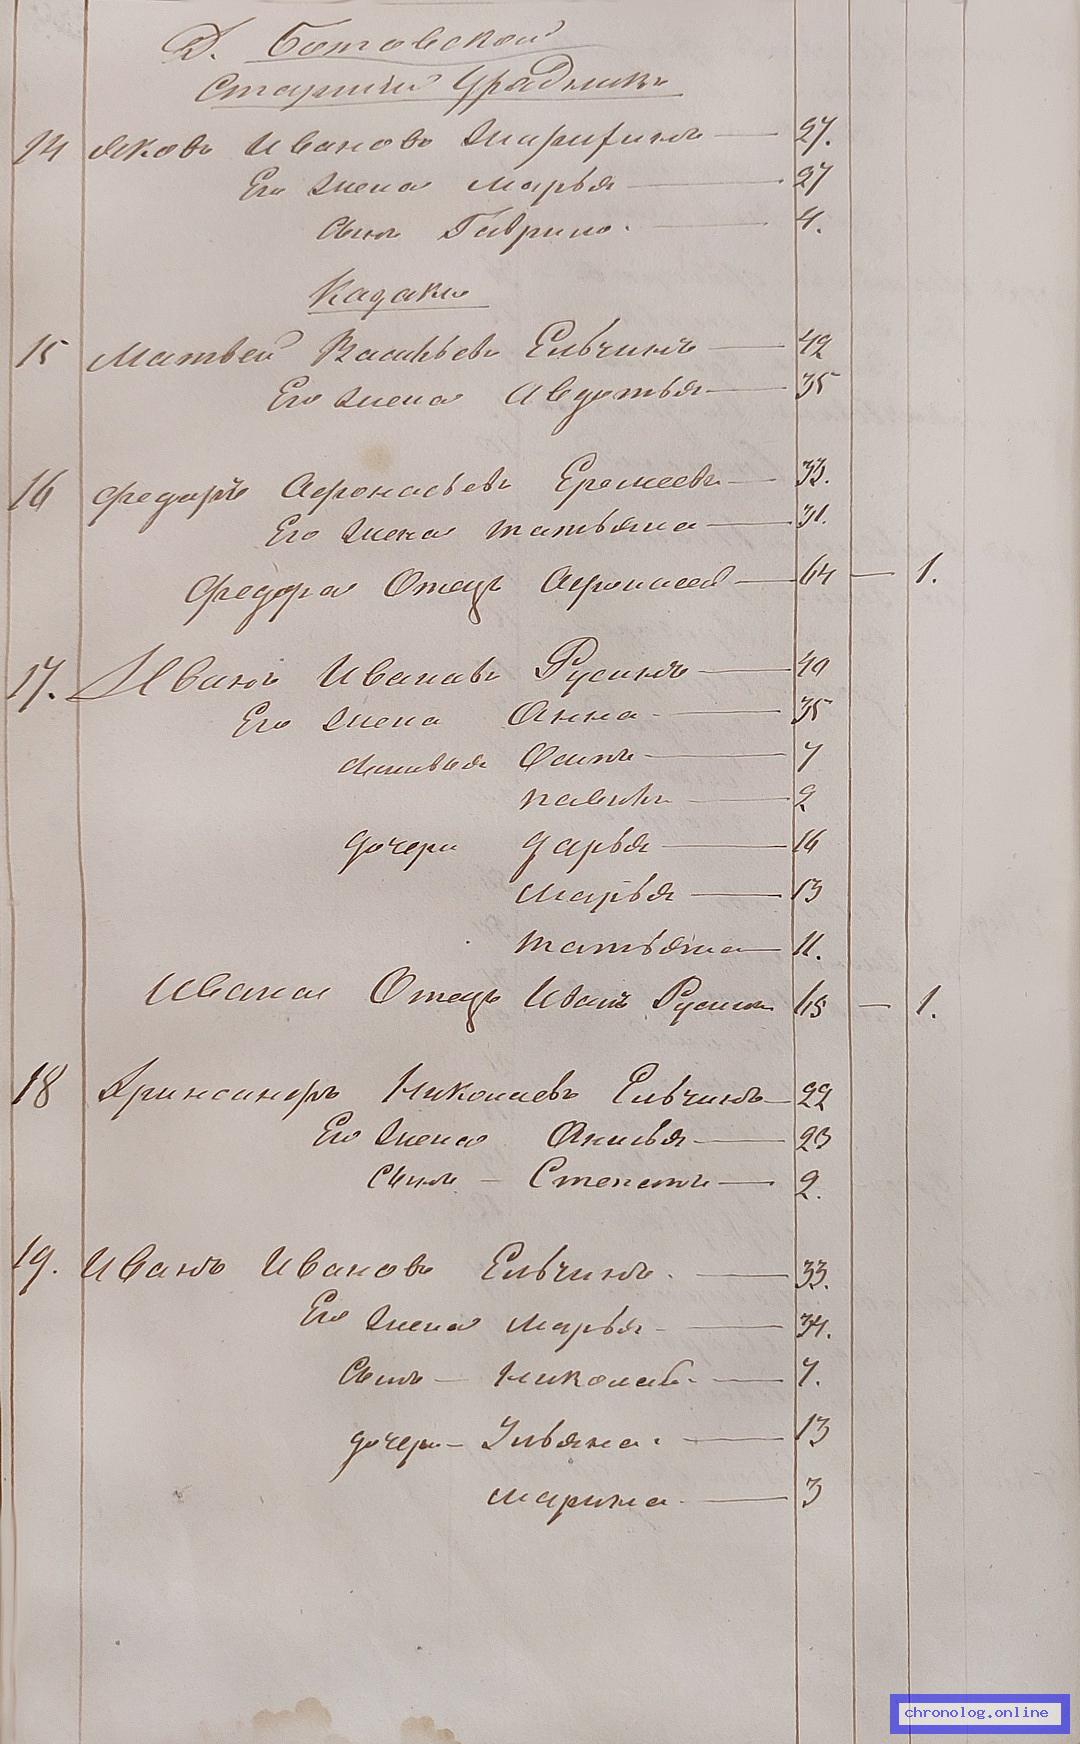 Д. Ботовской
Старший Урядникъ
14 Яковъ Ивановъ 27.
Его жена Марья 27
Сынъ Гаврило. 4.
Казаки
15 Матвей Васильевъ Ельчинъ 42
Его жена Авдотья 35
16 Федоръ Афонасьевъ Еремеевъ 33.
Его жена Татьяна 31.
Федора Отецъ Афонасей 64 — 1.
17. Иванъ Ивановъ Русинъ 40
Его жена Анна 35
сыновья Осипъ 7
Павилъ 2
дочери Дарья 16
Марья 13
Татьяна 11.
Ивана Отецъ Иванъ Русинъ — 1.
18 Николаевъ Ельчинъ 22
Его жена Акилья 23
Сынъ — Степанъ 2.
19. Иванъ Ивановъ Ельчинъ. 33.
Его жена Марья 34.
Сынъ — Николай. 7.
дочери — Ульяна. 13
Марина 3
chronolog.online